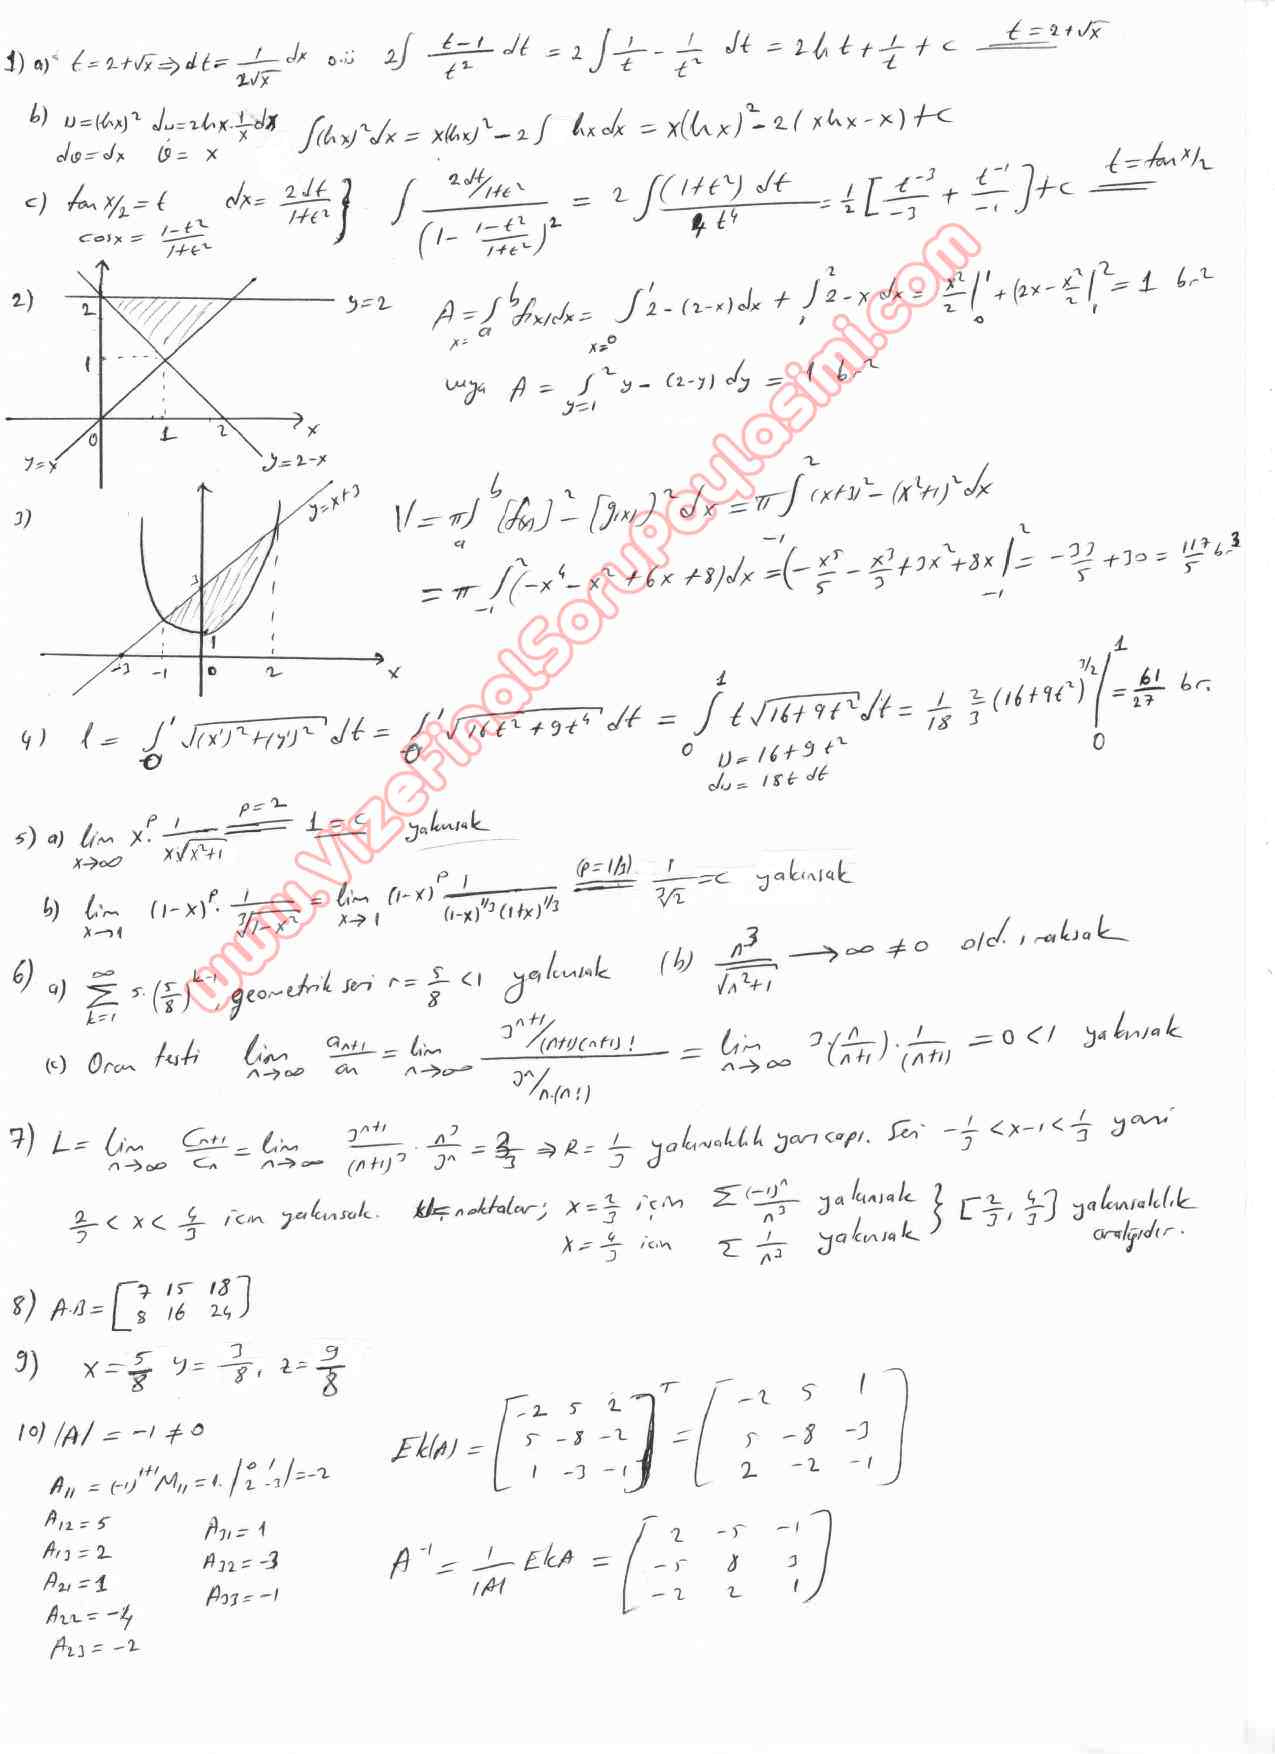 1) a) t = 2+√x ⇒ dt = 1/(2√x) dx o.ü 2∫ (t-1)/t² dt = 2∫ 1/t - 1/t² dt = 2ln t + 1/t + c t = 2+√x
b) u = (lnx)² du = 2lnx · 1/x dx ∫(lnx)² dx = x(lnx)² - 2∫ lnx dx = x(lnx)² - 2(xlnx - x) + c
dv = dx v = x
c) tan x/2 = t dx = 2dt/(1+t²) } ∫ (2dt/1+t²)/(1 - (1-t²)/(1+t²))² = 2∫ (1+t²)dt/(4t⁴) = 1/2 [t⁻³/-3 + t⁻¹/-1] + c t = tan x/2
cosx = (1-t²)/(1+t²)
2) y=2
2
1
0 1 2 x
y=x y=2-x
A = ∫_{x=a}^{b} f(x)dx = ∫_{x=0}^{1} 2-(2-x)dx + ∫_1^2 2-x dx = x²/2 |_0^1 + (2x - x²/2 |_1^2 = 1 br²
veya A = ∫_{y=1}^{2} y-(2-y) dy = 1 br²
3) y=x+3
3
1
-3 -1 0 2 x
V = π∫_a^b [f(x)]² - [g(x)]² dx = π∫_{-1}^{2} (x+3)² - (x²+1)² dx
= π∫_{-1}^{2} (-x⁴ - x² + 6x + 8)dx = (-x⁵/5 - x³/3 + 3x² + 8x |_{-1}^{2} = -33/5 + 30 = 117/5 br³
4) l = ∫_0^1 √((x')²+(y')²) dt = ∫_0^1 √(16t²+9t⁴) dt = ∫_0^1 t√(16+9t²) dt = 1/18 2/3 (16+9t²)^{3/2} |_0^1 = 61/27 br.
u = 16+9t²
du = 18t dt
5) a) lim_{x→∞} x^p · 1/(x√(x²+1)) = (p=2) 1 = c yakınsak
b) lim_{x→1} (1-x)^p · 1/∛(1-x²) = lim_{x→1} (1-x)^p 1/((1-x)^{1/3}(1+x)^{1/3}) = (p=1/3) 1/∛2 = c yakınsak
6) a) ∑_{k=1}^{∞} 5·(5/8)^{k-1}, geometrik seri r = 5/8 < 1 yakınsak (b) n³/√(n²+1) → ∞ ≠ 0 old. ıraksak
(c) Oran testi lim_{n→∞} a_{n+1}/a_n = lim_{n→∞} (3^{n+1}/(n+1)(n+1)!)/(3^n/n·(n!)) = lim_{n→∞} 3·(n/(n+1))·1/(n+1) = 0 < 1 yakınsak
7) L = lim_{n→∞} C_{n+1}/C_n = lim_{n→∞} 3^{n+1}/(n+1)³ · n³/3^n = 3 ⇒ R = 1/3 yakınsaklık yarıçapı. Seri -1/3 < x-1 < 1/3 yani
2/3 < x < 4/3 için yakınsak. noktalar; x = 2/3 için ∑ (-1)^n/n³ yakınsak } [2/3, 4/3] yakınsaklık
x = 4/3 için ∑ 1/n³ yakınsak aralığıdır.
8) A·B = [7 15 18
8 16 24]
9) x = 5/8 y = 3/8, z = 9/8
10) |A| = -1 ≠ 0
A₁₁ = (-1)^{1+1} M₁₁ = 1·|0 1
2 -3| = -2
A₁₂ = 5
A₁₃ = 2
A₂₁ = 1
A₂₂ = -4
A₂₃ = -2
A₃₁ = 1
A₃₂ = -3
A₃₃ = -1
Ek(A) = [-2 5 2
5 -8 -2
1 -3 -1]^T = [-2 5 1
5 -8 -3
2 -2 -1]
A⁻¹ = 1/|A| EkA = [2 -5 -1
-5 8 3
-2 2 1]
www.VizeFinalSoruPaylasimi.com